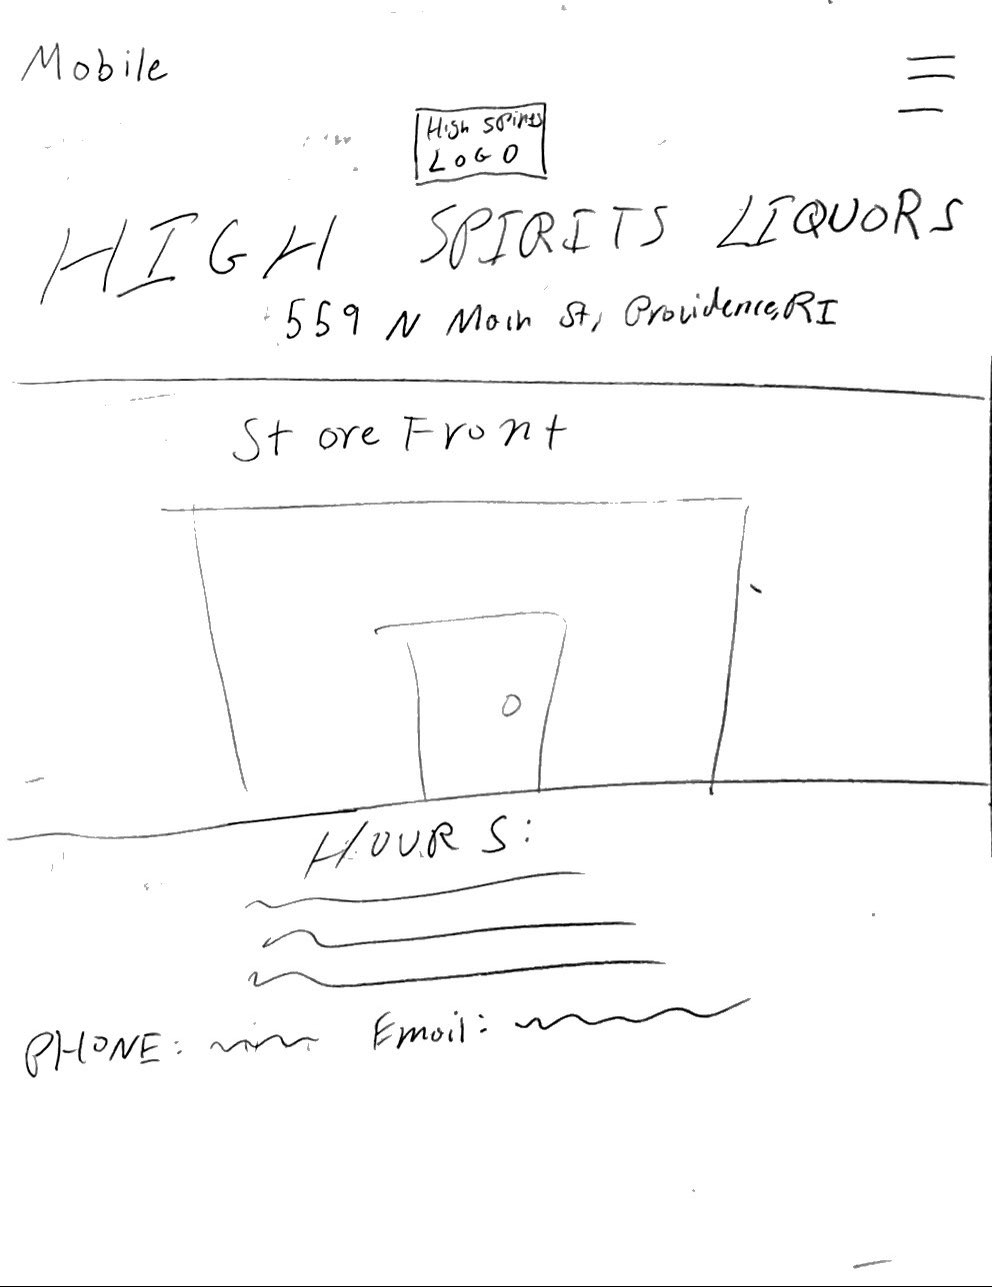 Mobile
High Spirits
LOGO
HIGH SPIRITS LIQUORS
559 N Main St, Providence, RI
Store Front
HOURS:
PHONE: Email: